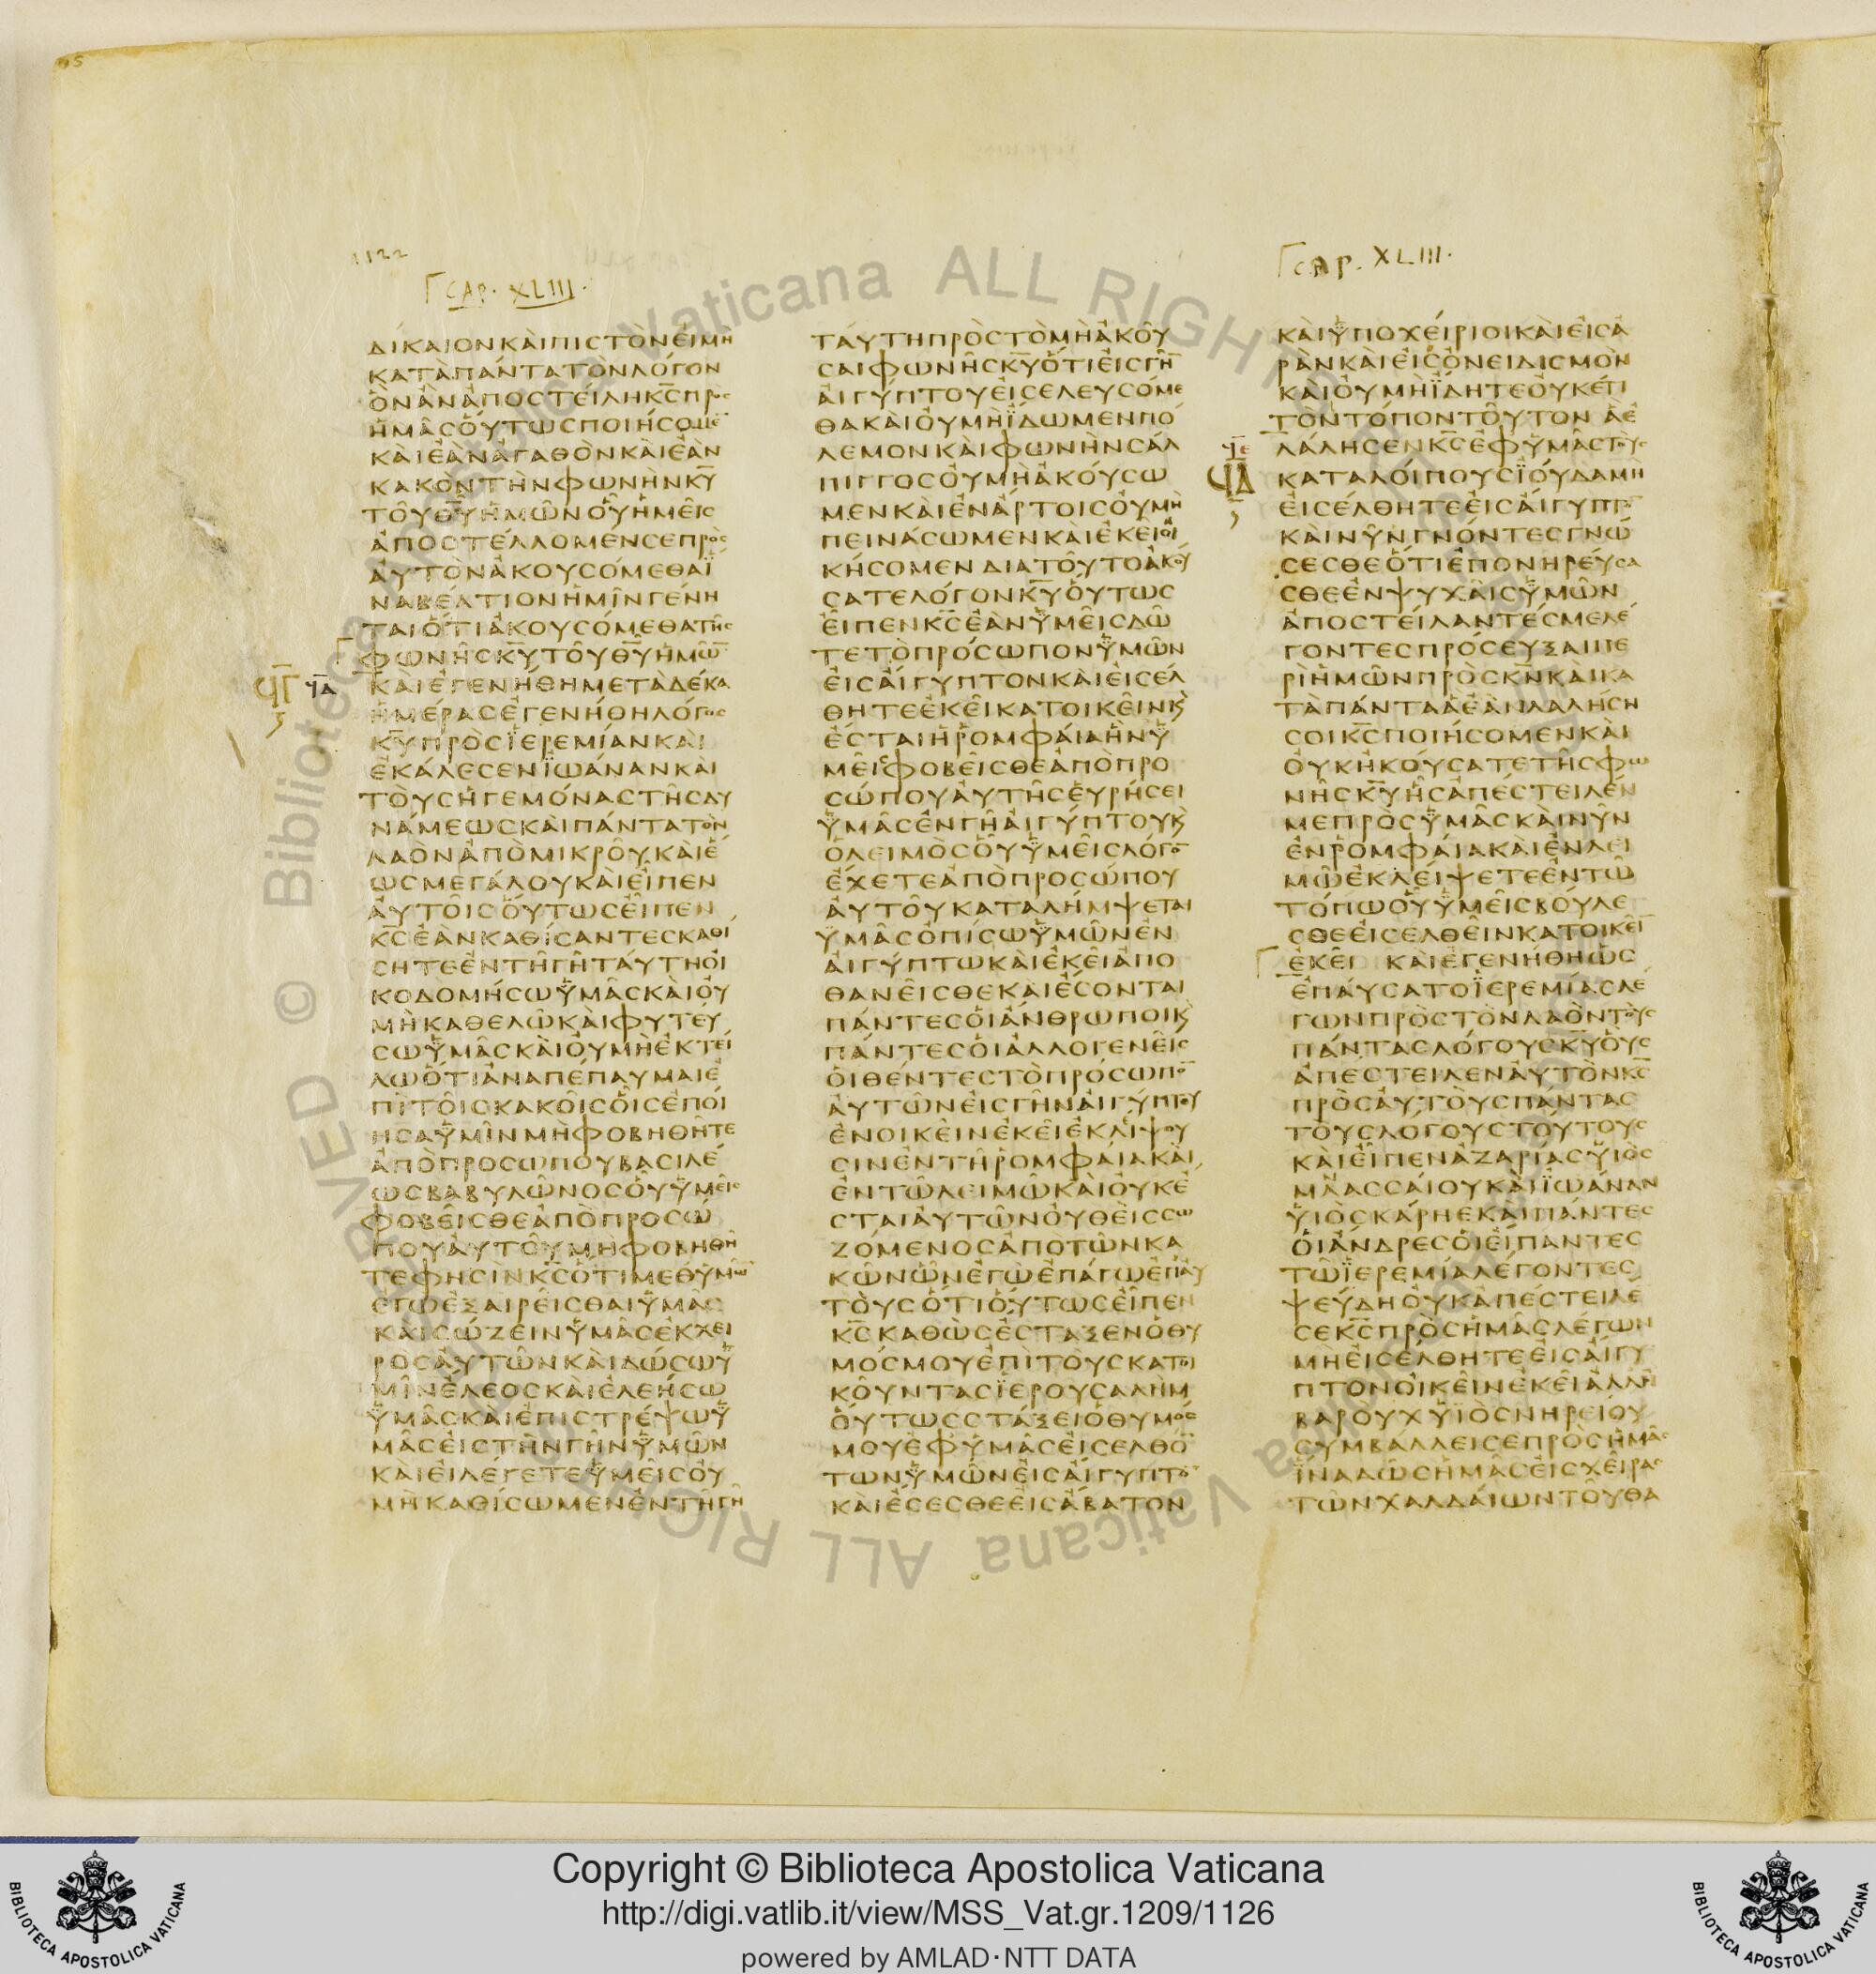 1122
CAP. XLIII.
ΔΙΚΑΙΟΝΚΑΙΠΙΣΤΟΝΕΙΜΗ
ΚΑΤΑΠΑΝΤΑΤΟΝΛΟΓΟΝ
ΟΝΑΝΑΠΟΣΤΕΙΛΗΚ̅Σ̅ΠΡΟΣ
ΗΜΑΣΟΥΤΩΣΠΟΙΗΣΟΜΕ
ΚΑΙΕΑΝΑΓΑΘΟΝΚΑΙΕΑΝ
ΚΑΚΟΝΤΗΝΦΩΝΗΝΚ̅Υ̅
ΤΟΥΘ̅Υ̅ΗΜΩΝΟΥΗΜΕΙΣ
ΑΠΟΣΤΕΛΛΟΜΕΝΣΕΠΡΟΣ
ΑΥΤΟΝΑΚΟΥΣΟΜΕΘΑΪ
ΝΑΒΕΛΤΙΟΝΗΜΙΝΓΕΝΗ
ΤΑΙΟΤΙΑΚΟΥΣΟΜΕΘΑΤΗΣ
ΦΩΝΗΣΚ̅Υ̅ΤΟΥΘ̅Υ̅ΗΜΩ̅
ϤΓ ϤΑ ΚΑΙΕΓΕΝΗΘΗΜΕΤΑΔΕΚΑ
ΗΜΕΡΑΣΕΓΕΝΗΘΗΛΟΓΟΣ
Κ̅Υ̅ΠΡΟΣΪΕΡΕΜΙΑΝΚΑΙ
ΕΚΑΛΕΣΕΝΪΩΑΝΑΝΚΑΙ
ΤΟΥΣΗΓΕΜΟΝΑΣΤΗΣΔΥ
ΝΑΜΕΩΣΚΑΙΠΑΝΤΑΤΟΝ
ΛΑΟΝΑΠΟΜΙΚΡΟΥΚΑΙΕ
ΩΣΜΕΓΑΛΟΥΚΑΙΕΙΠΕΝ
ΑΥΤΟΙΣΟΥΤΩΣΕΙΠΕΝ
Κ̅Σ̅ΕΑΝΚΑΘΙΣΑΝΤΕΣΚΑΘΙ
ΣΗΤΕΕΝΤΗΓΗΤΑΥΤΗΟΙ
ΚΟΔΟΜΗΣΩΫΜΑΣΚΑΙΟΥ
ΜΗΚΑΘΕΛΩΚΑΙΦΥΤΕΥ
ΣΩΫΜΑΣΚΑΙΟΥΜΗΕΚΤΕΙ
ΛΩΟΤΙΑΝΑΠΕΠΑΥΜΑΙΕ
ΠΙΤΟΙΣΚΑΚΟΙΣΟΙΣΕΠΟΙ
ΗΣΑΫΜΙΝΜΗΦΟΒΗΘΗΤΕ
ΑΠΟΠΡΟΣΩΠΟΥΒΑΣΙΛΕ
ΩΣΒΑΒΥΛΩΝΟΣΟΥΫΜΕΙΣ
ΦΟΒΕΙΣΘΕΑΠΟΠΡΟΣΩ
ΠΟΥΑΥΤΟΥΜΗΦΟΒΗΘΗ
ΤΕΦΗΣΙΝΚ̅Σ̅ΟΤΙΜΕΘΥΜΩ̅
ΕΓΩΕΞΑΙΡΕΙΣΘΑΙΫΜΑΣ
ΚΑΙΣΩΖΕΙΝΫΜΑΣΕΚΧΕΙ
ΡΟΣΑΥΤΩΝΚΑΙΔΩΣΩΫ
ΜΙΝΕΛΕΟΣΚΑΙΕΛΕΗΣΩ
ΫΜΑΣΚΑΙΕΠΙΣΤΡΕΨΩΫ
ΜΑΣΕΙΣΤΗΝΓΗΝΫΜΩΝ
ΚΑΙΕΙΛΕΓΕΤΕΫΜΕΙΣΟΥ
ΜΗΚΑΘΙΣΩΜΕΝΕΝΤΗΓΗ
ΤΑΥΤΗΠΡΟΣΤΟΜΗΑΚΟΥ
ΣΑΙΦΩΝΗΣΚ̅Υ̅ΟΤΙΕΙΣΓΗ̅
ΑΙΓΥΠΤΟΥΕΙΣΕΛΕΥΣΟΜΕ
ΘΑΚΑΙΟΥΜΗΪΔΩΜΕΝΠΟ
ΛΕΜΟΝΚΑΙΦΩΝΗΝΣΑΛ
ΠΙΓΓΟΣΟΥΜΗΑΚΟΥΣΩ
ΜΕΝΚΑΙΕΝΑΡΤΟΙΣΟΥΜΗ
ΠΕΙΝΑΣΩΜΕΝΚΑΙΕΚΕΙΟΙ
ΚΗΣΟΜΕΝΔΙΑΤΟΥΤΟΑΚΟΥ
ΣΑΤΕΛΟΓΟΝΚ̅Υ̅ΟΥΤΩΣ
ΕΙΠΕΝΚ̅Σ̅ΕΑΝΫΜΕΙΣΔΩ
ΤΕΤΟΠΡΟΣΩΠΟΝΫΜΩΝ
ΕΙΣΑΙΓΥΠΤΟΝΚΑΙΕΙΣΕΛ
ΘΗΤΕΕΚΕΙΚΑΤΟΙΚΕΙΝΚ
ΕΣΤΑΙΗΡΟΜΦΑΙΑΗΝΫ
ΜΕΙΣΦΟΒΕΙΣΘΕΑΠΟΠΡΟ
ΣΩΠΟΥΑΥΤΗΣΕΥΡΗΣΕΙ
ΫΜΑΣΕΝΓΗΑΙΓΥΠΤΟΥΚ
ΟΛΕΙΜΟΣΟΥΫΜΕΙΣΛΟΓΟ̅
ΕΧΕΤΕΑΠΟΠΡΟΣΩΠΟΥ
ΑΥΤΟΥΚΑΤΑΛΗΜΨΕΤΑΙ
ΫΜΑΣΟΠΙΣΩΫΜΩΝΕΝ
ΑΙΓΥΠΤΩΚΑΙΕΚΕΙΑΠΟ
ΘΑΝΕΙΣΘΕΚΑΙΕΣΟΝΤΑΙ
ΠΑΝΤΕΣΟΙΑΝΘΡΩΠΟΙΚ
ΠΑΝΤΕΣΟΙΑΛΛΟΓΕΝΕΙΣ
ΟΙΘΕΝΤΕΣΤΟΠΡΟΣΩΠΟ̅
ΑΥΤΩΝΕΙΣΓΗΝΑΙΓΥΠΤΟΥ
ΕΝΟΙΚΕΙΝΕΚΕΙΕΚΛΙΨΟΥ
ΣΙΝΕΝΤΗΡΟΜΦΑΙΑΚΑΙ
ΕΝΤΩΛΕΙΜΩΚΑΙΟΥΚΕ
ΣΤΑΙΑΥΤΩΝΟΥΘΕΙΣΣΩ
ΖΟΜΕΝΟΣΑΠΟΤΩΝΚΑ
ΚΩΝΩΝΕΓΩΕΠΑΓΩΕΠΑΥ
ΤΟΥΣΟΤΙΟΥΤΩΣΕΙΠΕΝ
Κ̅Σ̅ΚΑΘΩΣΕΣΤΑΞΕΝΟΘΥ
ΜΟΣΜΟΥΕΠΙΤΟΥΣΚΑΤΟΙ
ΚΟΥΝΤΑΣΪΕΡΟΥΣΑΛΗΜ
ΟΥΤΩΣΣΤΑΞΕΙΟΘΥΜΟΣ
ΜΟΥΕΦΫΜΑΣΕΙΣΕΛΘΟ̅
ΤΩΝΫΜΩΝΕΙΣΑΙΓΥΠΤΟ̅
ΚΑΙΕΣΕΣΘΕΕΙΣΑΒΑΤΟΝ
CAP. XLIII.
ΚΑΙΫΠΟΧΕΙΡΙΟΙΚΑΙΕΙΣΑ
ΡΑΝΚΑΙΕΙΣΟΝΕΙΔΙΣΜΟΝ
ΚΑΙΟΥΜΗΪΔΗΤΕΟΥΚΕΤΙ
ΤΟΝΤΟΠΟΝΤΟΥΤΟΝ ΑΕ
ϤΕ ΛΑΛΗΣΕΝΚ̅Σ̅ΕΦΫΜΑΣΤΟΥΣ
ϤΔ ΚΑΤΑΛΟΙΠΟΥΣΪΟΥΔΑΜΗ
ΕΙΣΕΛΘΗΤΕΕΙΣΑΙΓΥΠΤΟ̅
ΚΑΙΝΥΝΓΝΟΝΤΕΣΓΝΩ
ΣΕΣΘΕΟΤΙΕΠΟΝΗΡΕΥΣΑ
ΣΘΕΕΝΨΥΧΑΙΣΫΜΩΝ
ΑΠΟΣΤΕΙΛΑΝΤΕΣΜΕΛΕ
ΓΟΝΤΕΣΠΡΟΣΕΥΞΑΙΠΕ
ΡΙΗΜΩΝΠΡΟΣΚ̅Ν̅ΚΑΙΚΑ
ΤΑΠΑΝΤΑΑΕΑΝΛΑΛΗΣΗ
ΣΟΙΚ̅Σ̅ΠΟΙΗΣΟΜΕΝΚΑΙ
ΟΥΚΗΚΟΥΣΑΤΕΤΗΣΦΩ
ΝΗΣΚ̅Υ̅ΗΣΑΠΕΣΤΕΙΛΕΝ
ΜΕΠΡΟΣΫΜΑΣΚΑΙΝΥΝ
ΕΝΡΟΜΦΑΙΑΚΑΙΕΝΛΕΙ
ΜΩΕΚΛΕΙΨΕΤΕΕΝΤΩ
ΤΟΠΩΟΥΫΜΕΙΣΒΟΥΛΕ
ΣΘΕΕΙΣΕΛΘΕΙΝΚΑΤΟΙΚΕΙ̅
ΕΚΕΙ ΚΑΙΕΓΕΝΗΘΗΩΣ
ΕΠΑΥΣΑΤΟΪΕΡΕΜΙΑΣΛΕ
ΓΩΝΠΡΟΣΤΟΝΛΑΟΝΤΟΥΣ
ΠΑΝΤΑΣΛΟΓΟΥΣΚ̅Υ̅ΟΥΣ
ΑΠΕΣΤΕΙΛΕΝΑΥΤΟΝΚ̅Σ̅
ΠΡΟΣΑΥΤΟΥΣΠΑΝΤΑΣ
ΤΟΥΣΛΟΓΟΥΣΤΟΥΤΟΥΣ
ΚΑΙΕΙΠΕΝΑΖΑΡΙΑΣΫΙΟΣ
ΜΑΑΣΣΑΙΟΥΚΑΙΪΩΑΝΑΝ
ΫΙΟΣΚΑΡΗΕΚΑΙΠΑΝΤΕΣ
ΟΙΑΝΔΡΕΣΟΙΕΙΠΑΝΤΕΣ
ΤΩΪΕΡΕΜΙΑΛΕΓΟΝΤΕΣ
ΨΕΥΔΗΟΥΚΑΠΕΣΤΕΙΛΕ
ΣΕΚ̅Σ̅ΠΡΟΣΗΜΑΣΛΕΓΩΝ
ΜΗΕΙΣΕΛΘΗΤΕΕΙΣΑΙΓΥ
ΠΤΟΝΟΙΚΕΙΝΕΚΕΙΑΛΛΗ
ΒΑΡΟΥΧΫΙΟΣΝΗΡΕΙΟΥ
ΣΥΜΒΑΛΛΕΙΣΕΠΡΟΣΗΜΑΣ
ΪΝΑΔΩΣΗΜΑΣΕΙΣΧΕΙΡΑΣ
ΤΩΝΧΑΛΔΑΙΩΝΤΟΥΘΑ
© Biblioteca Vaticana ALL RIGH
Vaticana ALL RIGH VED
Copyright © Biblioteca Apostolica Vaticana
http://digi.vatlib.it/view/MSS_Vat.gr.1209/1126
powered by AMLAD·NTT DATA
BIBLIOTECA APOSTOLICA VATICANA
BIBLIOTECA APOSTOLICA VATICANA